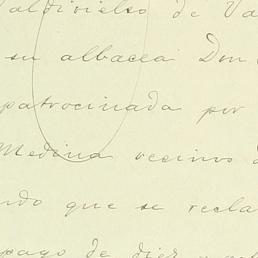 Valdivielso de Va
su albacea Don
patrocinada por
Medina vecinos d
ndo que se recla
pago de diez